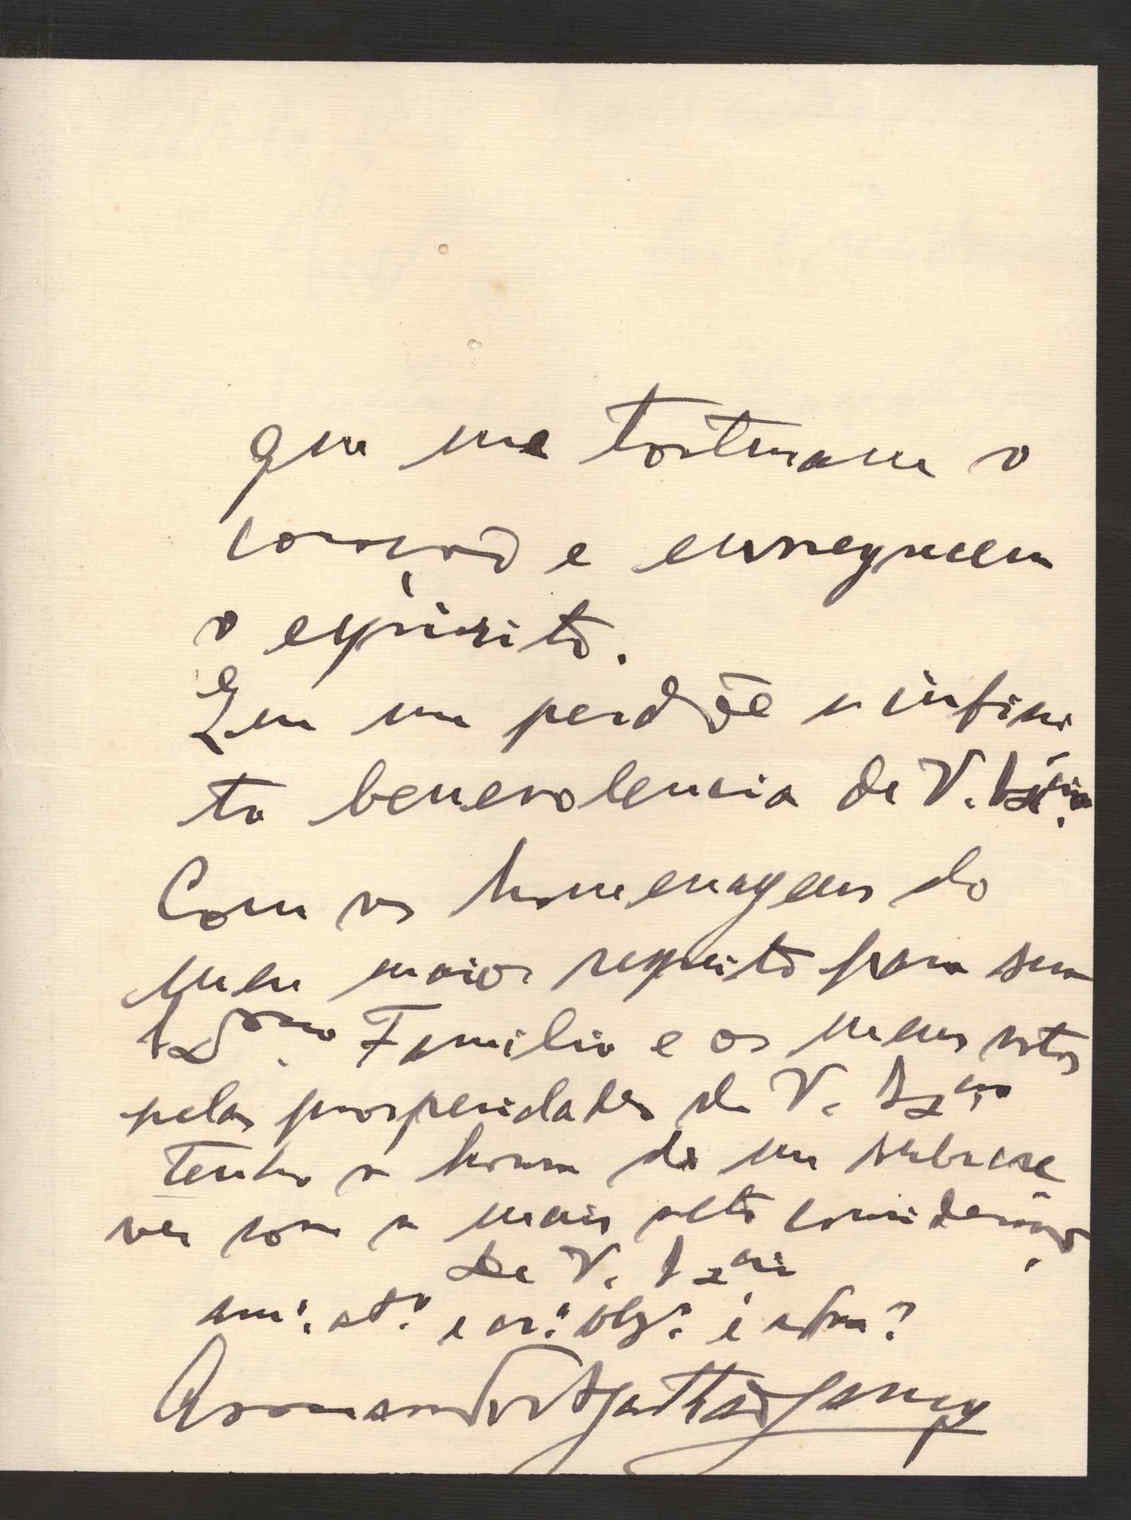 que me torturam o
coração e ennegrecem
o espirito.
Que me perdôe a infini
ta benevolencia de V. Exᶜⁱᵃ.
Com as homenagens do
meu maior respeito para sua
Exᵐᵃ Familia e os meus votos
pelas prosperidades de V. Exᶜⁱᵃ
tenho a honra de me subscre
ver com a mais alta consideração
De V. Exᶜⁱᵃ
am.º, at.º e cr.º obg.º e adm.ºʳ
Armando